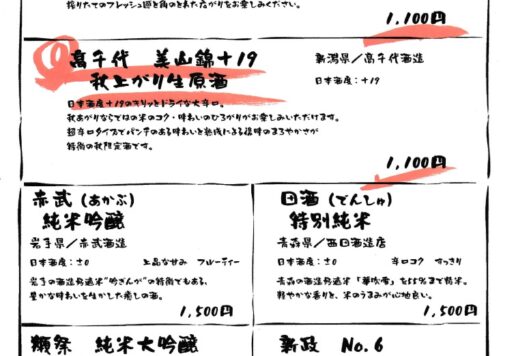 搾りたてのフレッシュ感と角のとれた広がりをお楽しみください。
1,100円
高千代 美山錦+19
秋上がり生原酒
新潟県/高千代酒造
日本酒度:+19
日本酒度+19のキリッとドライな大辛口。
秋あがりならではの米のコク・味わいのひろがりがお楽しみいただけます。
超辛口タイプでパンチのある味わいと熟成による後味のまろやかさが
特徴の秋限定酒です。
1,100円
赤武(あかぶ)
純米吟醸
岩手県/赤武酒造
日本酒度:±0 上品な甘み フルーティー
岩手の酒造好適米"吟ぎんが"の特徴でもある、
豊かな味わいを生かした癒しの酒。
1,500円
田酒(でんしゅ)
特別純米
青森県/西田酒造店
日本酒度:±0 辛口コク すっきり
青森の酒造好適米「華吹雪」を55%まで精米。
軽やかな香りと、米のうまみが心地良い。
1,500円
獺祭 純米大吟醸
新政 No.6